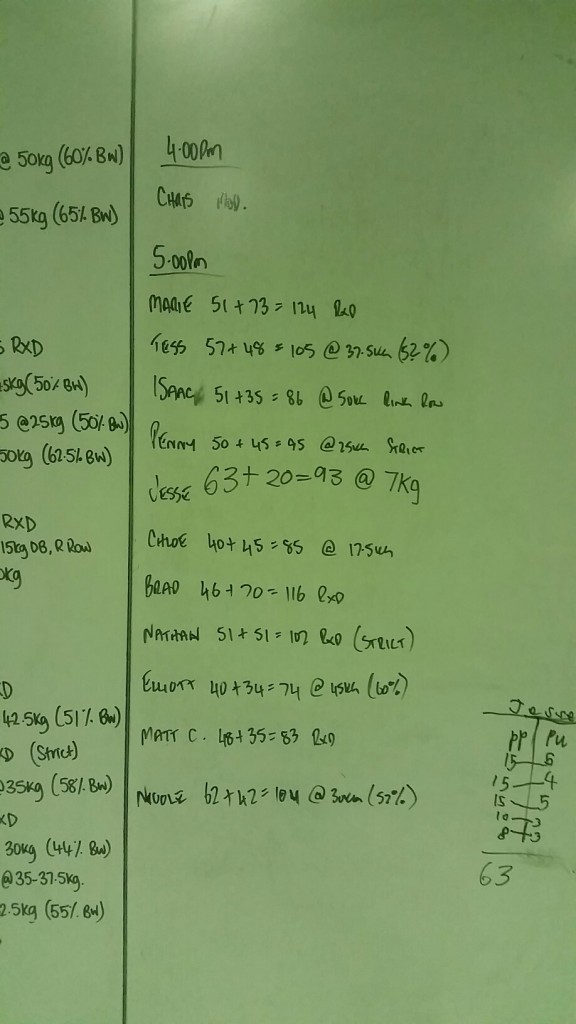 @ 50kg (60% BW)
55kg (65% BW)
RXD
5kg (50% BW)
5 @25kg (50% BW)
50kg (62.5% BW)
RXD
15kg DB, R Row
0kg
D
42.5kg (51% BW)
XD (Strict)
@35kg (58% BW)
XD
30kg (44% BW)
@35-37.5kg.
2.5kg (55% BW)
4.00pm
CHRIS MOD.
5.00pm
MARIE 51 + 73 = 124 RxD
TESS 57 + 48 = 105 @ 37.5kg (52%)
ISAAC 51 + 35 = 86 @ 50kg Ring Row
PENNY 50 + 45 = 95 @ 25kg STRICT
JESSE 63 + 20 = 93 @ 7kg
CHLOE 40 + 45 = 85 @ 17.5kg
BRAD 46 + 70 = 116 RxD
NATHAN 51 + 51 = 102 RxD (STRICT)
ELLIOTT 40 + 34 = 74 @ 45kg (60%)
MATT C. 48 + 35 = 83 RxD
NICOLE 62 + 42 = 104 @ 30kg (52%)
Jesse
PP PU
15 5
15 4
15 5
10 3
8 3
63